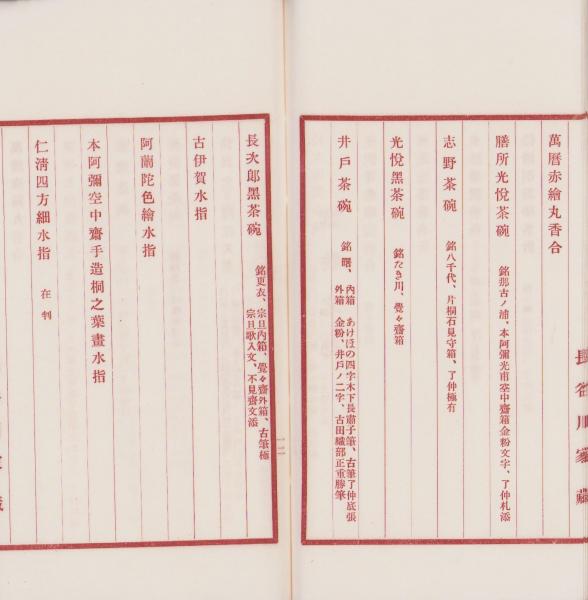 萬曆赤繪丸香合
膳所光悅茶碗 銘那古ノ浦、本阿彌光甫空中齋箱金粉文字、了仲札添
志野茶碗 銘八千代、片桐石見守箱、了仲極有
光悅黑茶碗 銘たき川、覺々齋箱
井戶茶碗 銘 曙、內箱 あけほの四字木下長肅子筆、古筆了仲底張
外箱 金粉、井戶ノ二字、古田織部正重勝筆
長次郎黑茶碗 銘更衣、宗旦內箱、覺々齋外箱、古筆極
宗旦歌入文、不見齋文添
古伊賀水指
阿蘭陀色繪水指
本阿彌空中齋手造桐之葉畫水指
仁淸四方細水指 在判
長谷川家藏